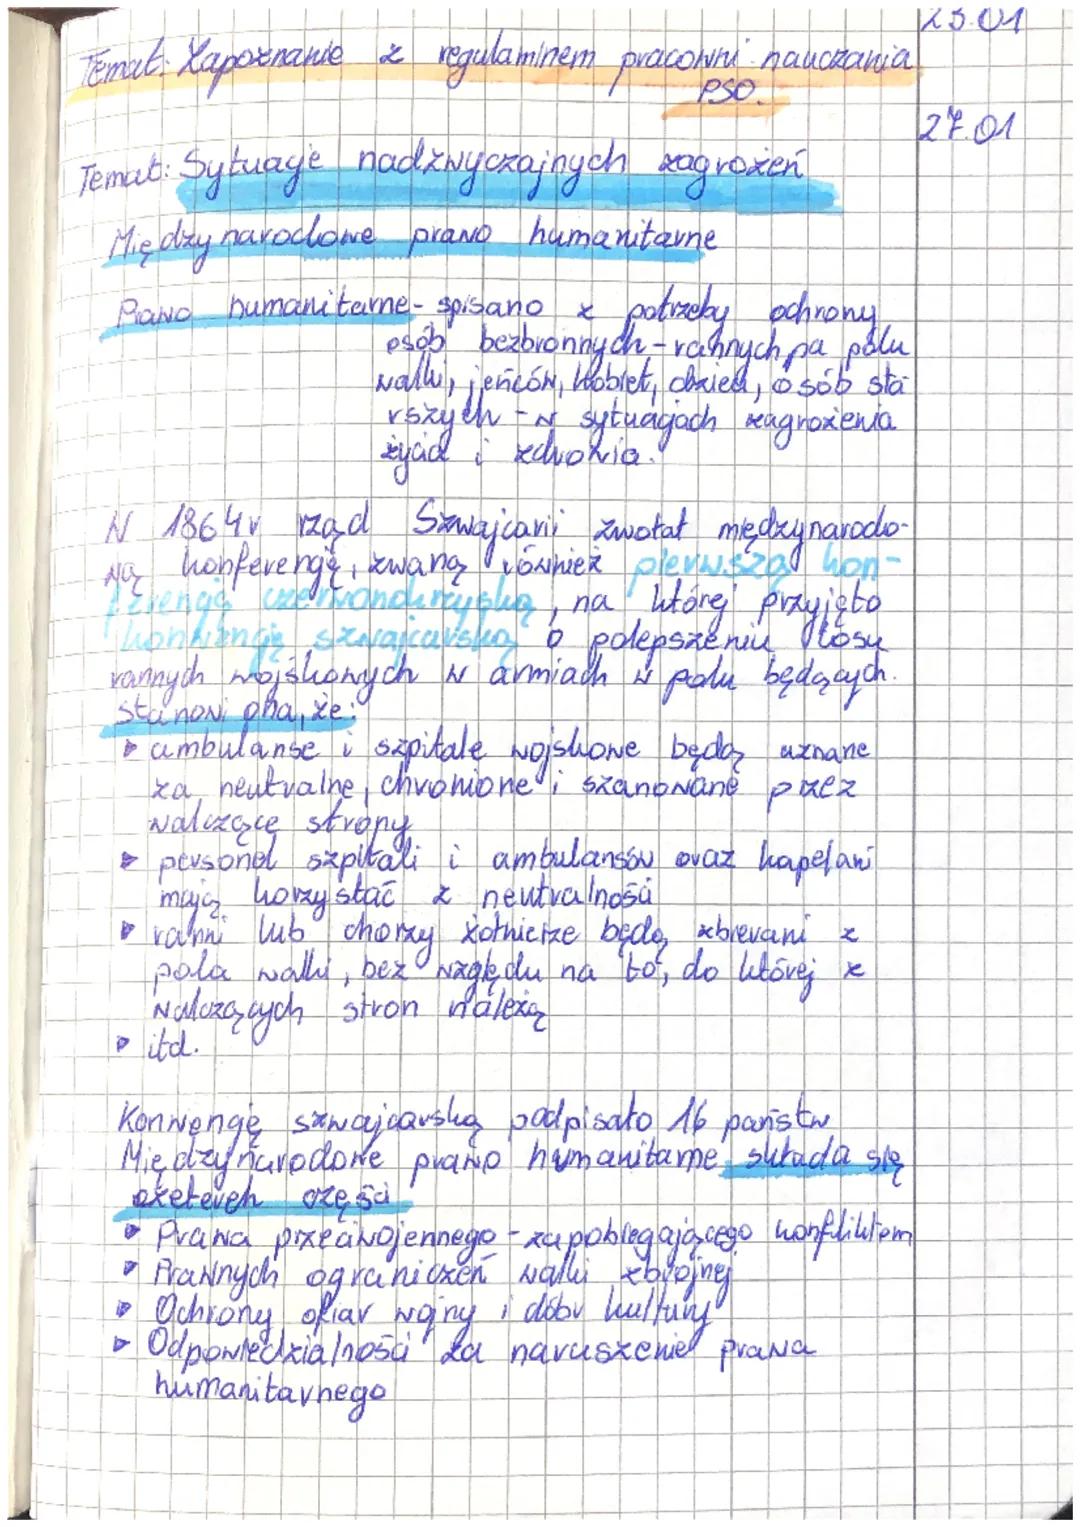 23.01
Temat: Zapoznanie z regulaminem pracowni nauczania
PSO.
27.01
Temat: Sytuacje nadzwyczajnych zagrożeń
Międzynarodowe prawo humanitarne
Prawo humanitarne - spisano z potrzeby ochrony
osób bezbronnych - rannych pa polu
walki, jeńców, kobiet, dzieci, osób sta
rszych - w sytuacjach zagrożenia
życia i zdrowia.
W 1864r rząd Szwajcarii zwołał międzynarodo-
wą konferencję, zwaną również pierwszą kon-
ferencją czerwonokrzyską, na której przyjęto
konwencję szwajcarską o polepszeniu losu
rannych wojskowych w armiach w polu będących.
Stanowi ona, że:
▷ ambulanse i szpitale wojskowe będą uznane
za neutralne, chronione i szanowane przez
walczące strony
▷ personel szpitali i ambulansów oraz kapelani
mają korzystać z neutralności
▷ ranni lub chorzy żołnierze będą zbierani z
pola walki, bez względu na to, do której z
walczących stron należą
▷ itd.
Konwencję szwajcarską podpisało 16 państw
Międzynarodowe prawo humanitarne składa się
czterech części
▷ Prawa przeciwojennego - zapobiegającego konfliktom
▷ Prawnych ograniczeń walki zbrojnej
▷ Ochrony ofiar wojny i dóbr kultury
▷ Odpowiedzialności za naruszenie prawa
humanitarnego